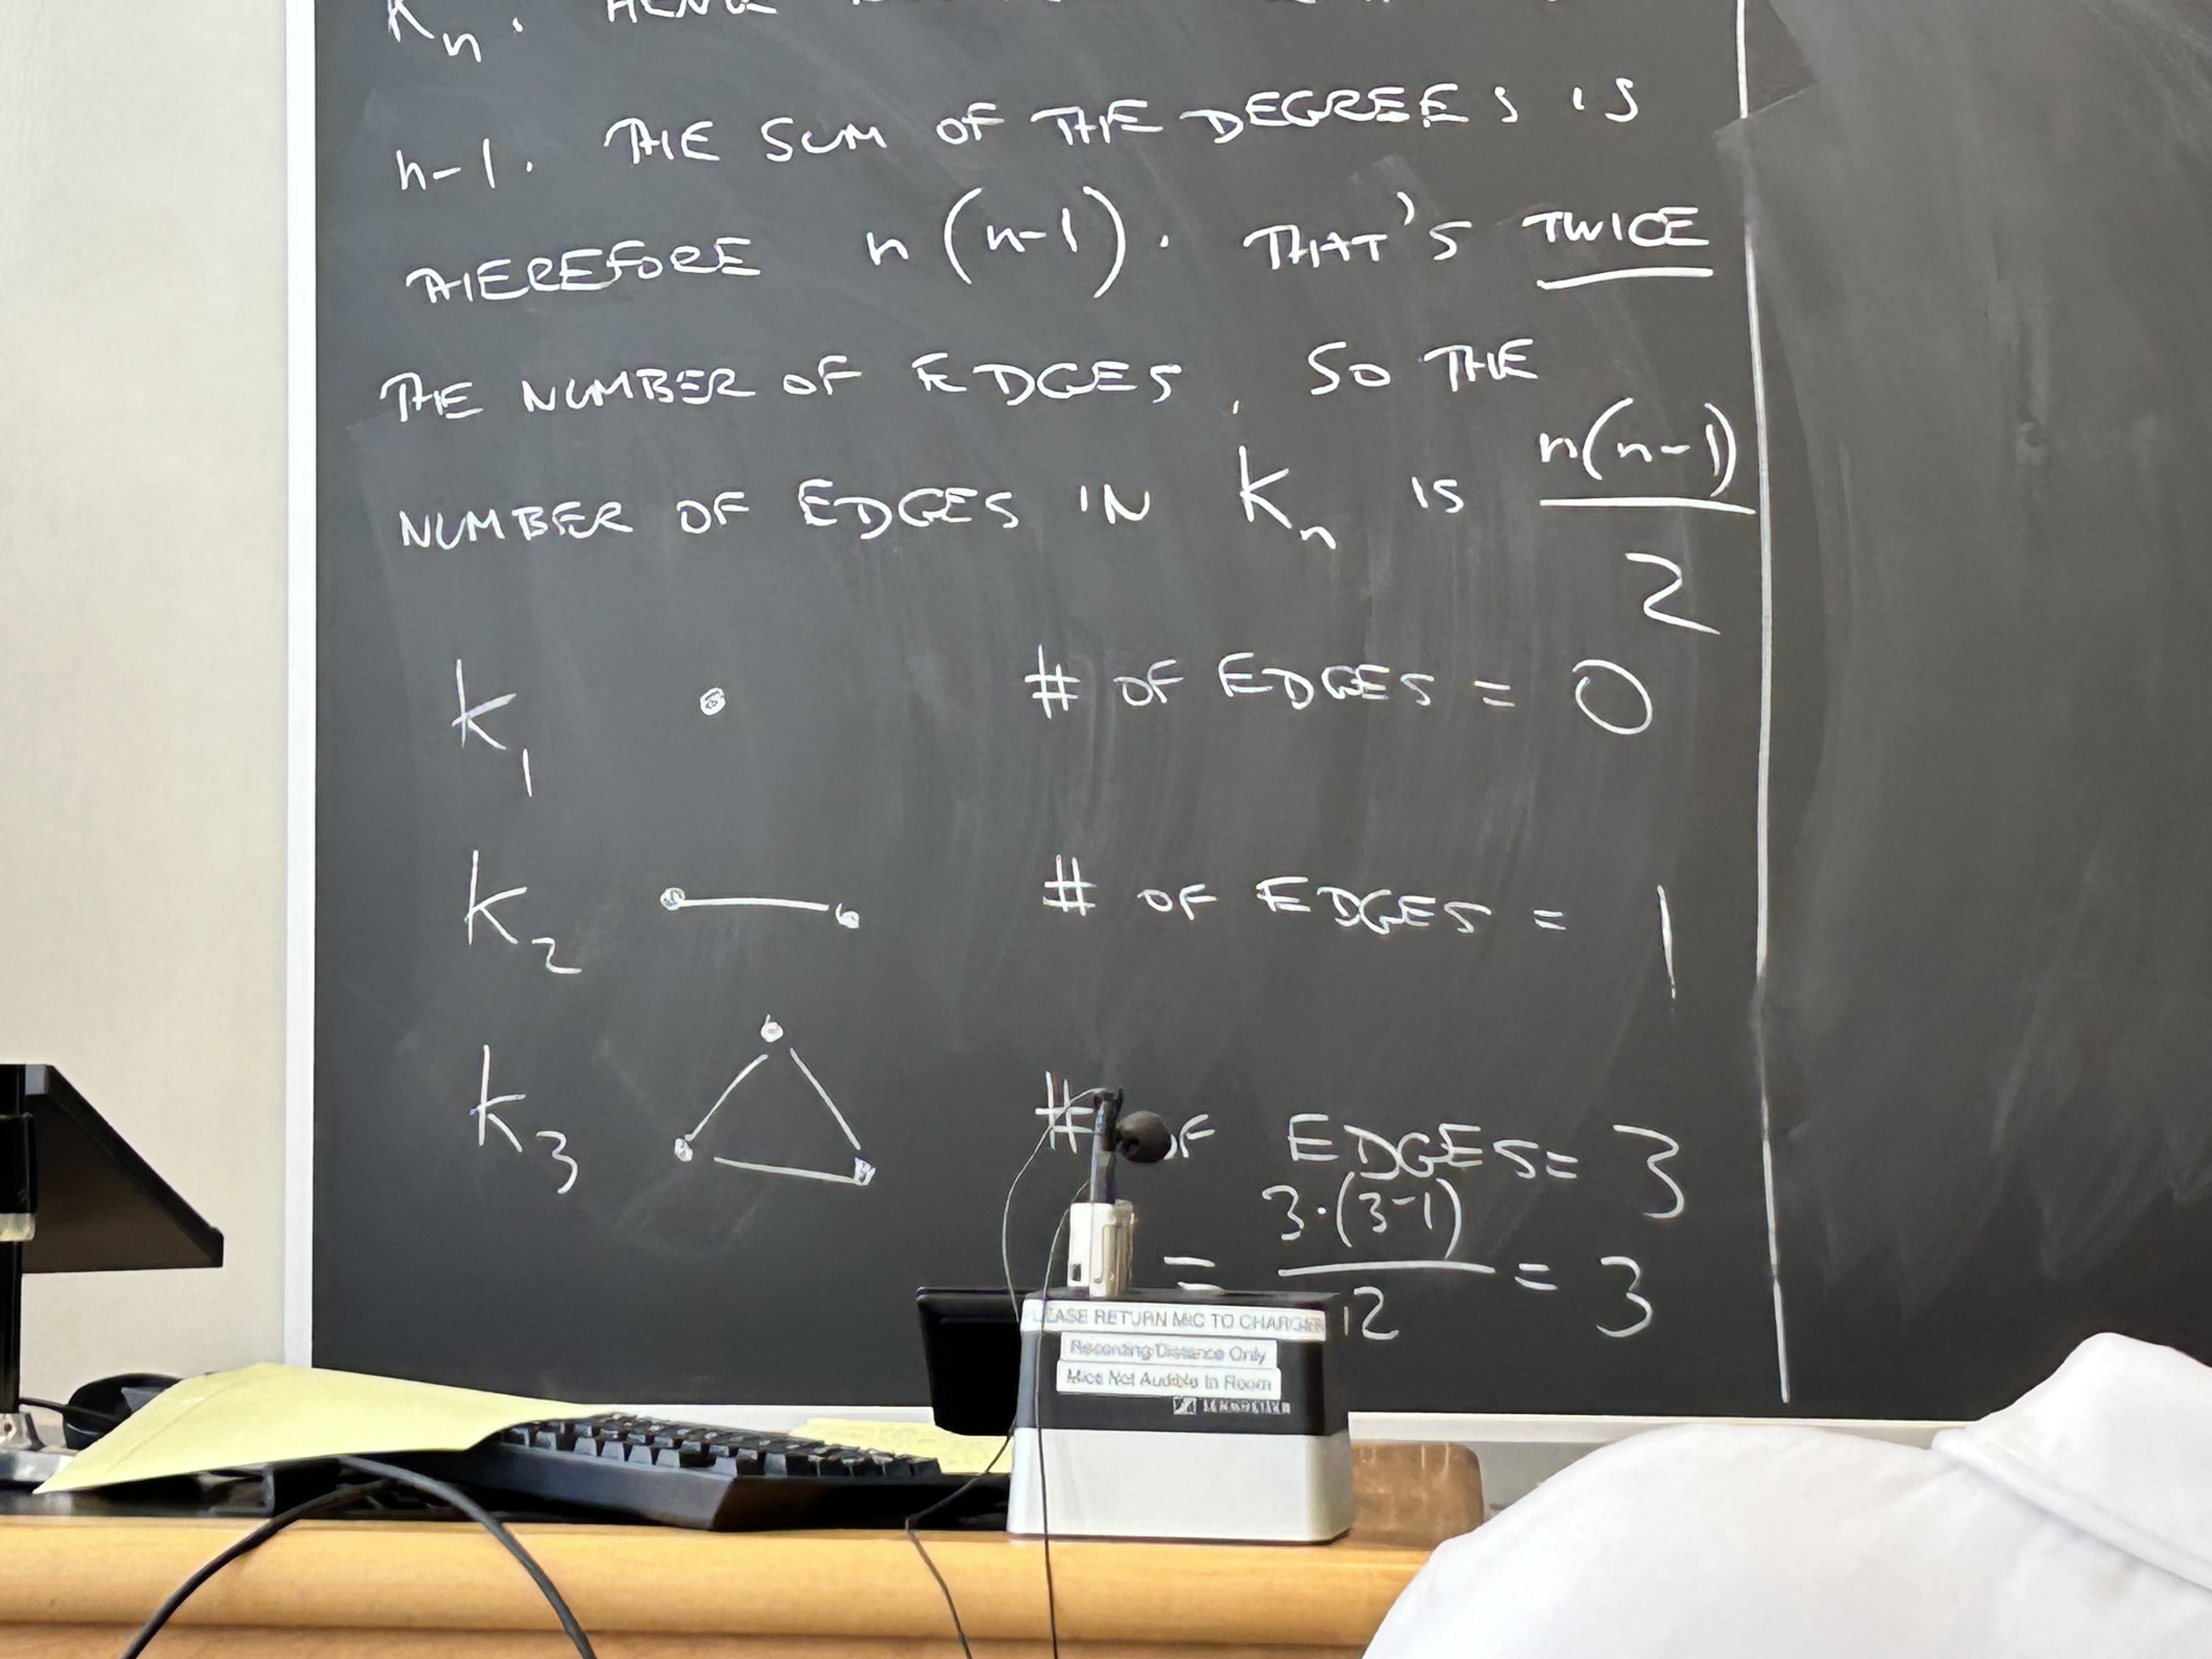 Kn. HENCE
n-1. THE SUM OF THE DEGREES IS
THEREFORE n(n-1). THAT'S TWICE
THE NUMBER OF EDGES. SO THE
NUMBER OF EDGES IN Kn IS n(n-1)/2
K1 # OF EDGES = 0
K2 # OF EDGES = 1
K3 # OF EDGES = 3
= 3·(3-1)/2 = 3
PLEASE RETURN MIC TO CHARGER
Recording/Distance Only
Mics Not Audible In Room
SENNHEISER